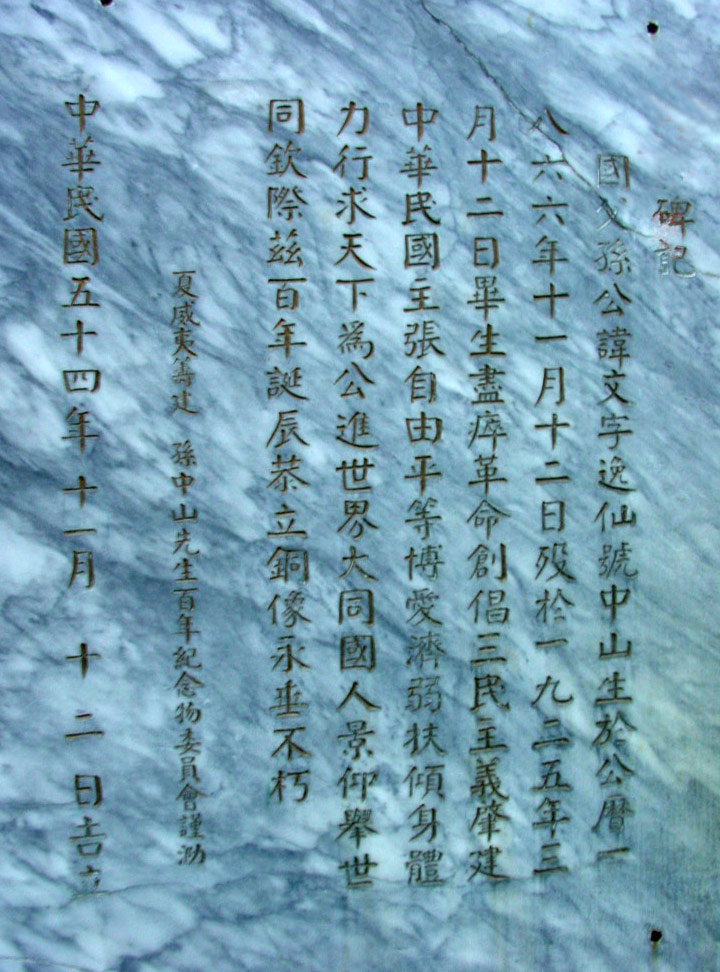 碑記
國父孫公諱文字逸仙號中山生於公曆一
八六六年十一月十二日歿於一九二五年三
月十二日畢生盡瘁革命創倡三民主義肇建
中華民國主張自由平等博愛濟弱扶傾身體
力行求天下為公進世界大同國人景仰舉世
同欽際茲百年誕辰恭立銅像永垂不朽
夏威夷籌建 孫中山先生百年紀念物委員會謹泐
中華民國五十四年十一月 十二日吉立